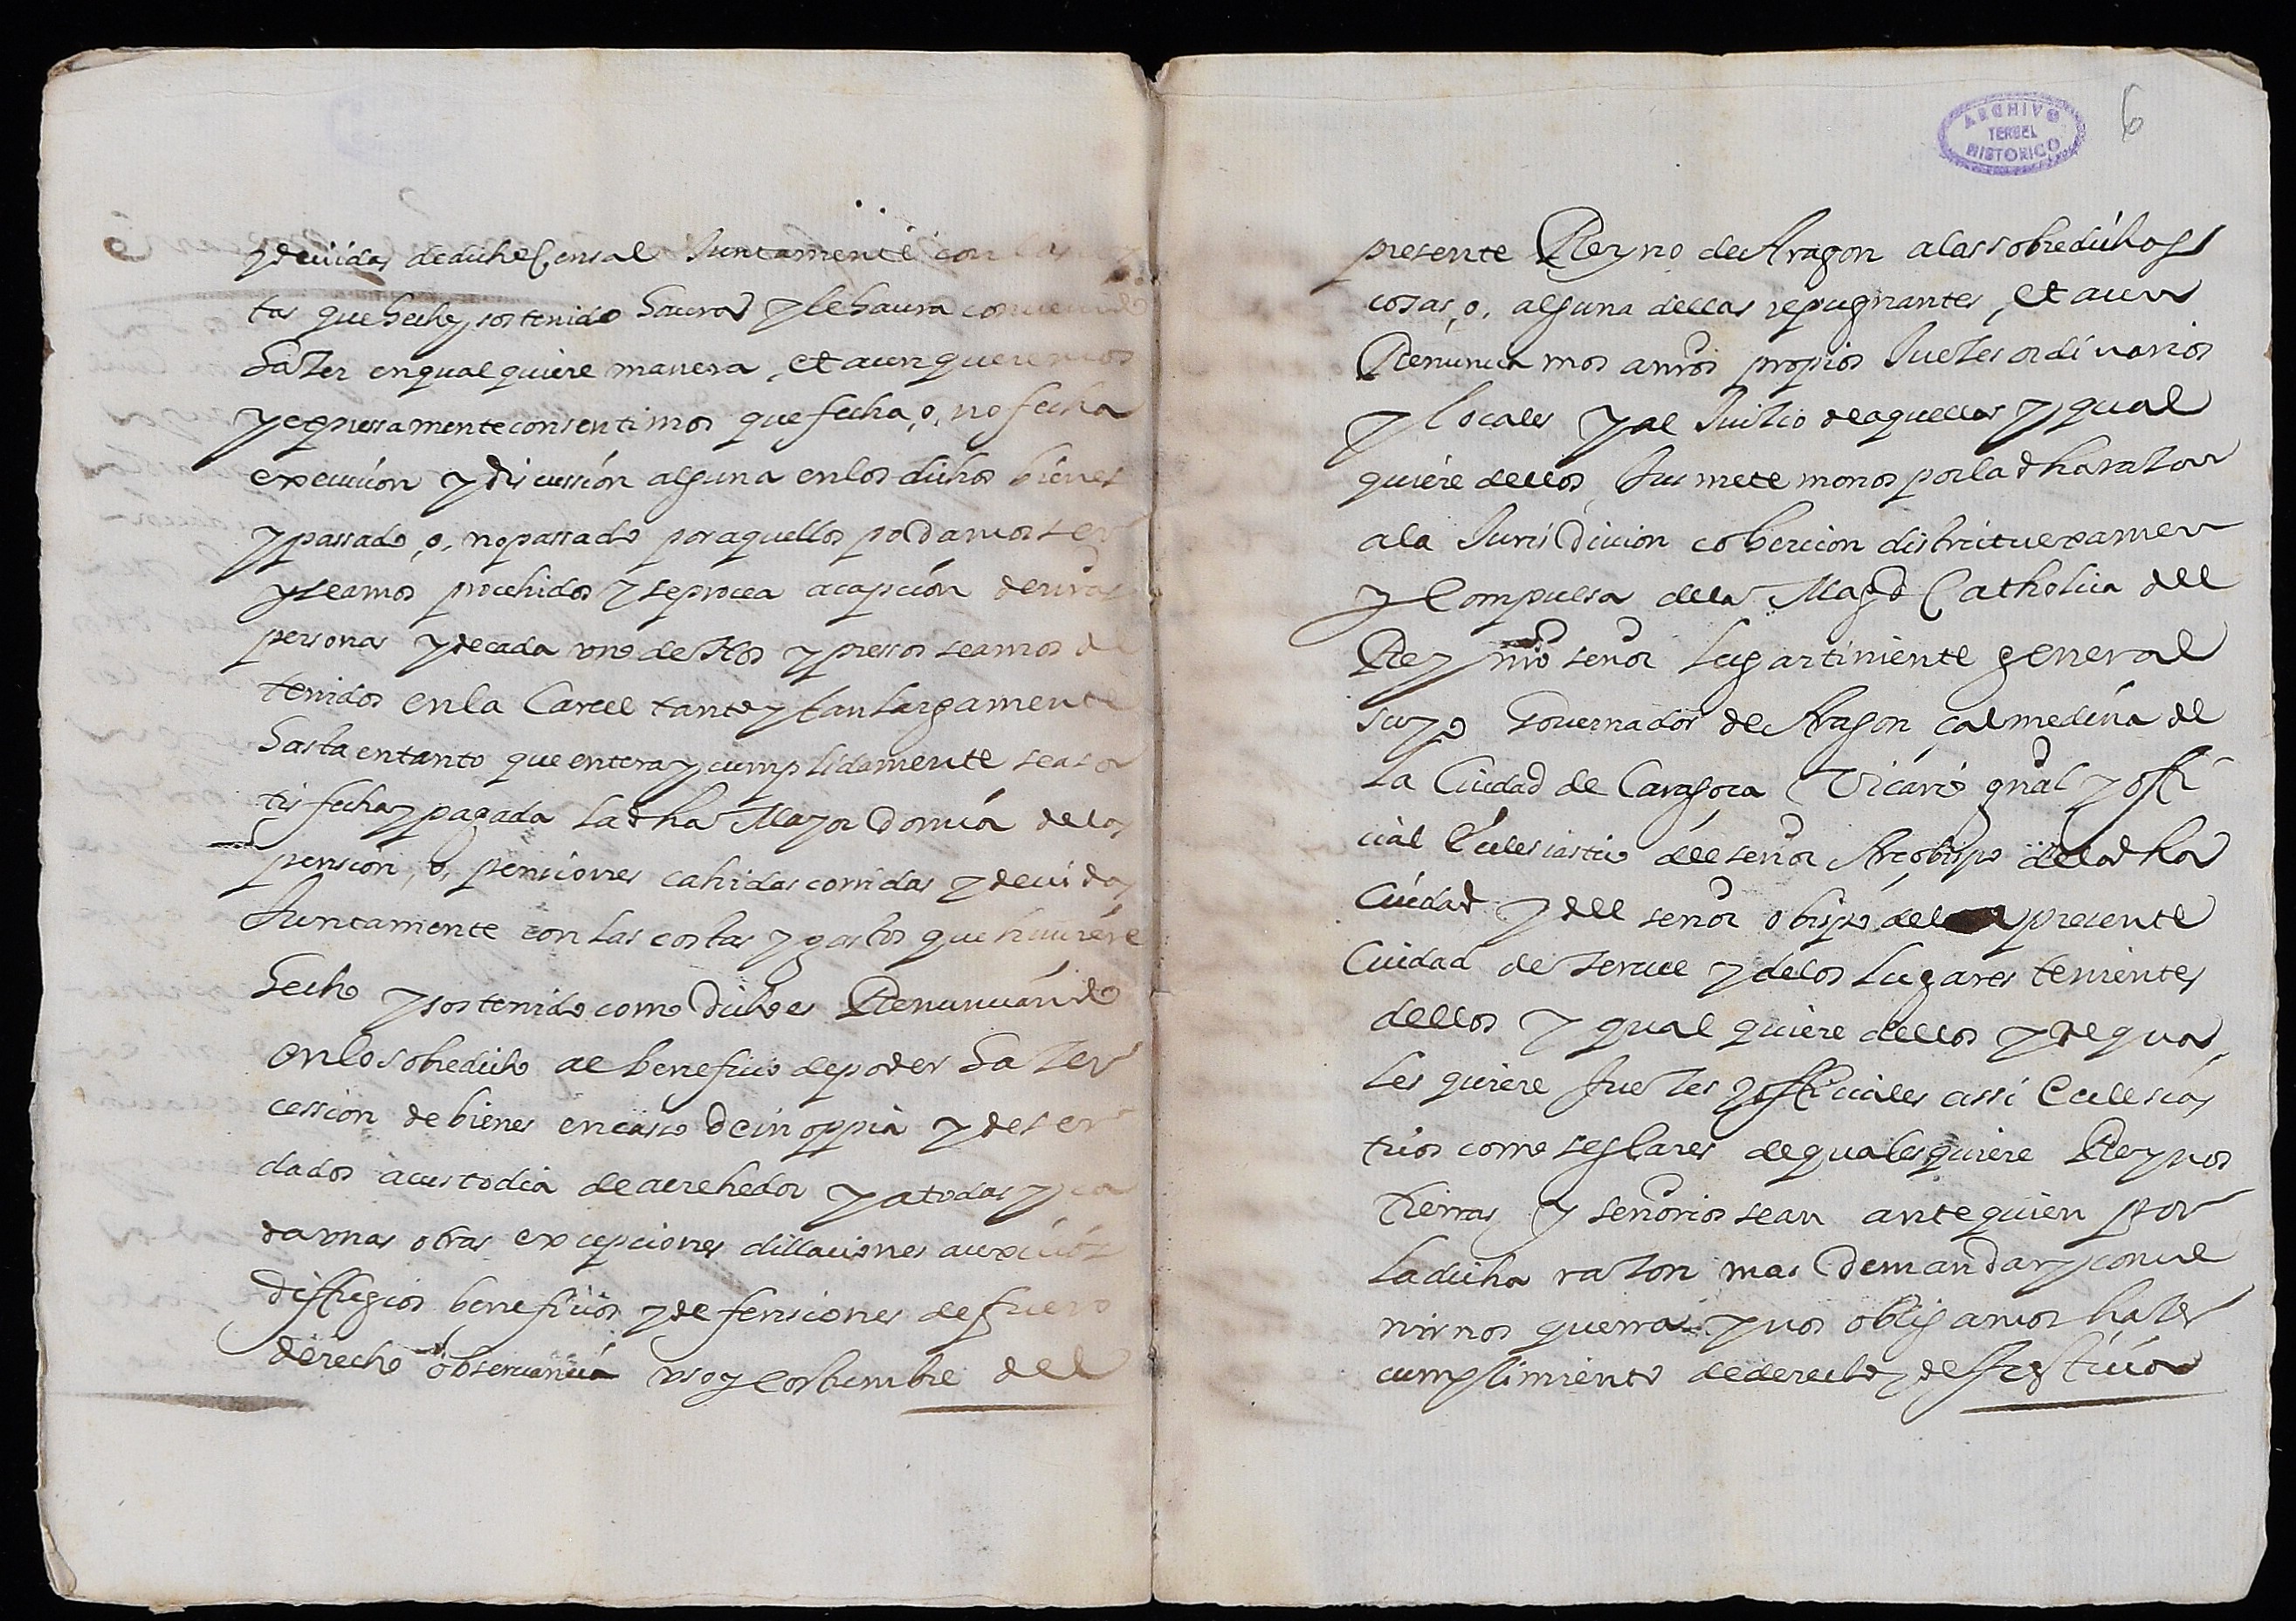 y deuidas de dicho Censal Juntamente con las
tas que hecho y sostenido haura y le haura conuenido
hazer en qual quiere manera, et aun queremos
y expressamente consentimos que fecha, o, no fecha
execucion y discussion alguna en los dichos bienes
y passado, o, no passado por aquellos podamos ser
y seamos procehidos y se procea a capcion de nras
personas y de cada vno de Nos y pressos seamos de
tenidos en la Carcel tanto y tan largamente
hasta en tanto que entera y cumplidamente sea sa
tisfecha y pagada la dha Mayordomia de la
pension, o, pensiones cahidas corridas y deuidas
Juntamente con las costas y gastos que huuiere
hecho y sostenido como dicho es Renunciando
en lo sobredicho al beneficio de poder hazer
cession de bienes en caso de inoppia y de ser
dados a custodia de acrehedor y a todas y ca
da vnas otras excepciones dillaciones auxilios
diffugios beneficios y defensiones de fuero
derecho obseruancia vso y Costumbre del
ARCHIVO
TERUEL
HISTORICO
6
presente Reyno de Aragon a las sobredichas
cosas, o, alguna dellas repugnantes, et aun
Renunciamos a nros propios Juezes ordinarios
y locales y al Juicio de aquellos y qual
quiere dellos, Jusmetemonos por la dha razon
a la Jurisdicion cohercion districtu examen
y Compulsa de la Magd Catholica del
Rey nro señor lugartiniente general
suyo Gouernador de Aragon çalmedina de
la Ciudad de Caragoça Vicario gñal y offi
cial Eclesiastico del señor Arcobispo de la dha
Ciudad y del señor obispo de la presente
Ciudad de Teruel y de los lugares tenientes
dellos y qual quiere dellos y de qua
les quiere Juezes y officiales assi Eclesias
ticos como seglares de quales quiere Reynos
tierras y señorios sean ante quien por
la dicha razon mas demandar y conue
nirnos querra y nos obligamos hazer
cumplimiento de derecho y de Justicia